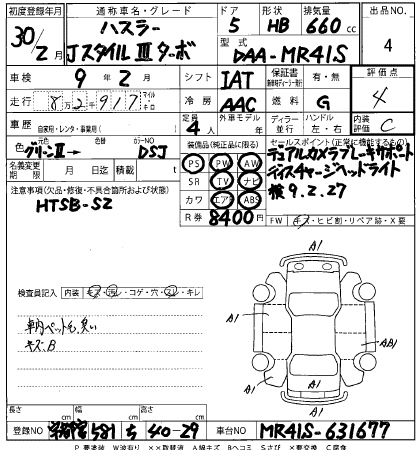 初度登録年月 通称車名・グレード ドア 形状 排気量 出品 NO.
30/2月 ハスラー JスタイルⅢターボ 5 HB 660 cc 4
型式 DAA-MR41S
車検 9年2月 シフト IAT 保証書 有・無 評価点
走行 8万2千917 マイル キロ 冷房 AAC 燃料 G 4
車歴 自家用・レンタ・事業用( ) 定員 4人 外車モデル年 ディーラー 並行 ハンドル 左・右 内装評価 C
色 元色 グリーンⅡ→ 色替 カラーNO DSJ
装備品(純正品に限る) セールスポイント(正常に機能するもの)
名義変更期限 月 日迄 積載量 t
PS PW AW
SR TV ナビ
カワ エアB ABS
R券 8400円
デュアルカメラブレーキサポート
ディスチャージヘッドライト
検 9.2.27
FW キズ・ヒビ割・リペア跡・X要
注意事項(欠品・修復・不具合箇所および状態)
HTSB-S2
検査員記入 内装 キズ・汚レ・コゲ・穴・スレ・キレ
車内ペット毛、臭い
キズ・B
A1
A1
A1
A1
AB1
A1
A1
長さ cm 幅 cm 高さ cm
登録NO 宇都宮 581 ち 40-29 車台NO MR41S-631677
P 要塗装 W波有り ××取替済 A線キズ Bヘコミ Sさび ×要交換 C腐食